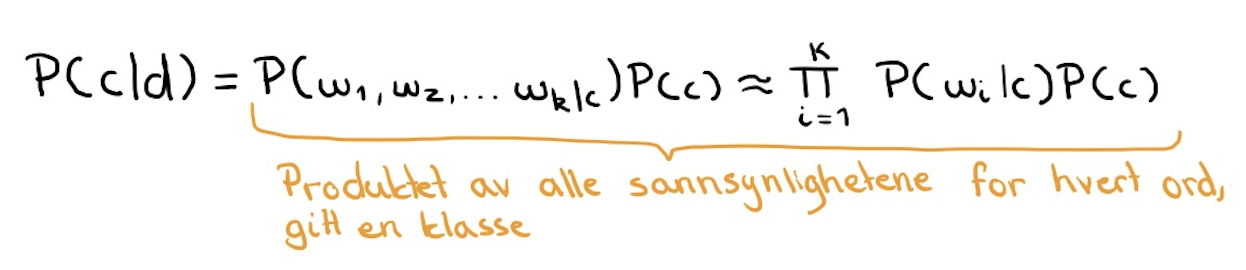 P(c|d) = P(w₁, w₂, ... wₖ|c)P(c) ≈ ∏ᵢ₌₁ᴷ P(wᵢ|c)P(c)
Produktet av alle sannsynlighetene for hvert ord,
gitt en klasse